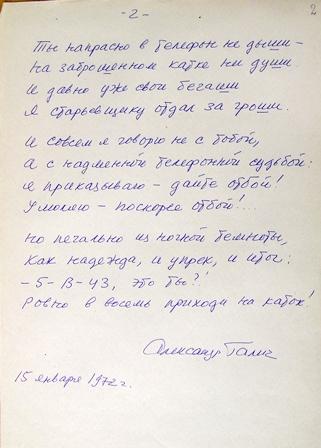 -2-
2
Ты напрасно в телефон не дыши –
На заброшенном катке ни души.
И давно уже свои бегаши
Я старьевщику отдал за гроши.
И совсем я говорю не с тобой,
А с надменной телефонной судьбой:
Я приказываю – дайте отбой!
Умоляю – поскорее отбой!...
Но печально из ночной темноты,
Как надежда, и упрек, и итог:
-5-13-43, это ты?
Ровно в восемь приходи на каток!
Александр Галич
15 января 1972 г.